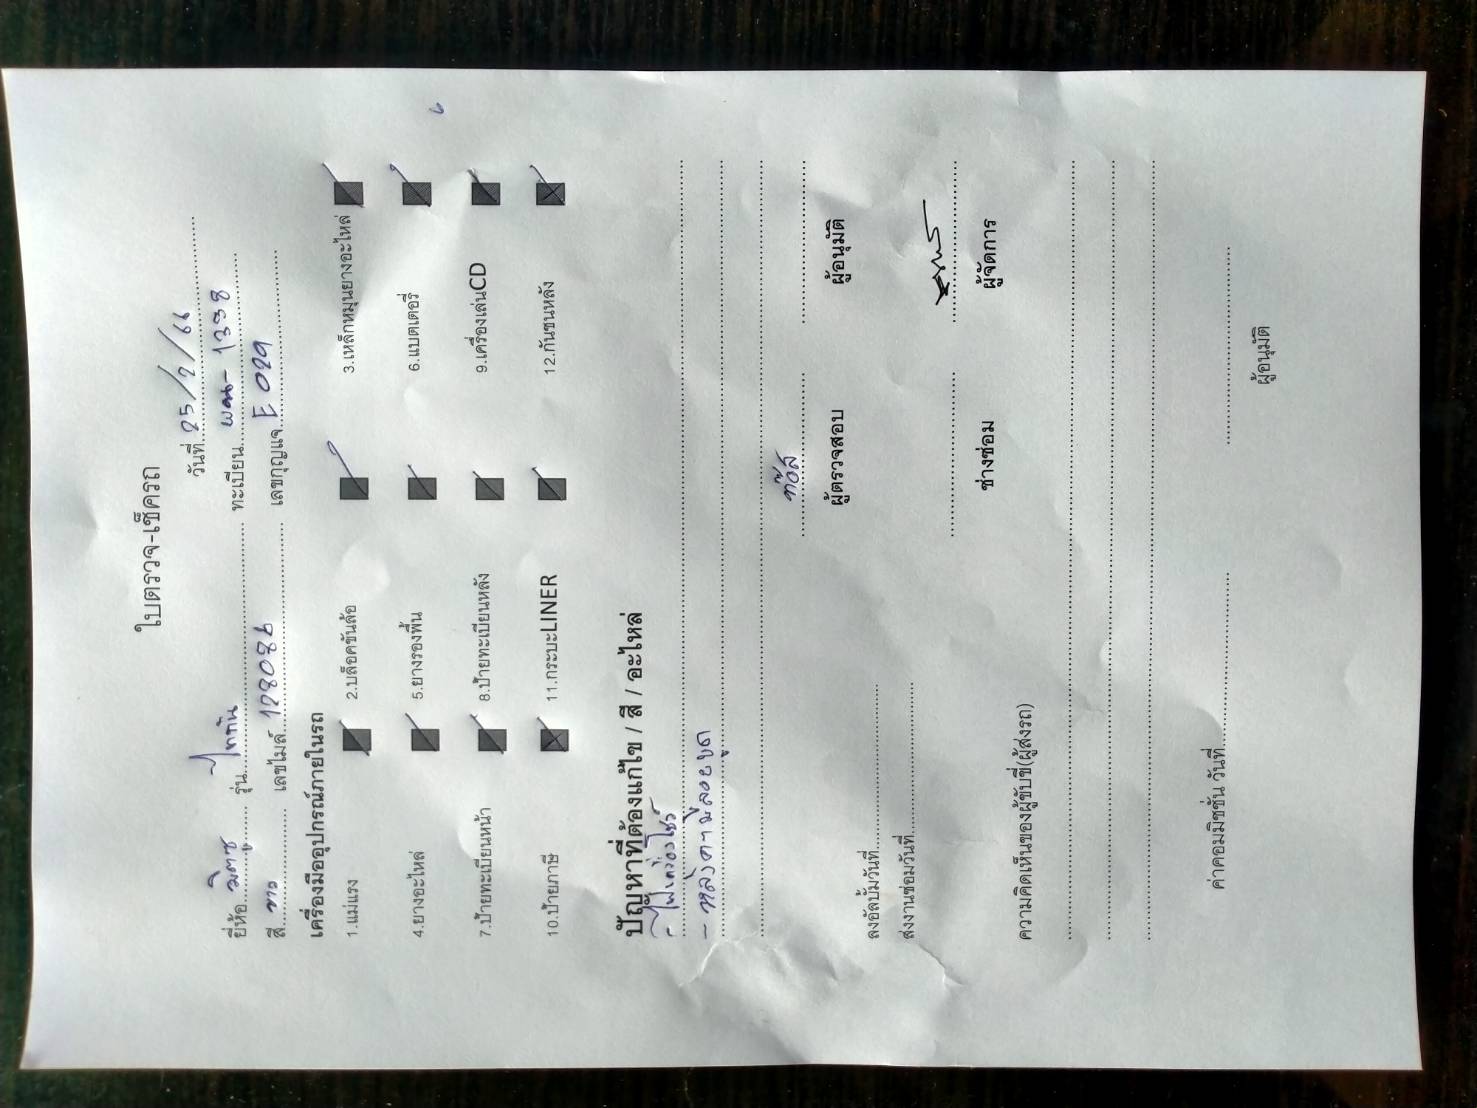 ใบตรวจ-เช็ครถ
วันที่ 25/2/66
ยี่ห้อ มิตซู รุ่น ไททัน ทะเบียน ผฒ-1398
สี ขาว เลขไมล์ 128086 เลขกุญแจ E 029
เครื่องมืออุปกรณ์ภายในรถ
1.แม่แรง 2.บล็อคขันล้อ 3.เหล็กหมุนยางอะไหล่
4.ยางอะไหล่ 5.ยางรองพื้น 6.แบตเตอรี่
7.ป้ายทะเบียนหน้า 8.ป้ายทะเบียนหลัง 9.เครื่องเล่นCD
10.ป้ายภาษี 11.กระบะLINER 12.กันชนหลัง
ปัญหาที่ต้องแก้ไข / สี / อะไหล่
- ไฟเครื่องโชว์
- หลังคามีลอยขูด
ท๊อส
ผู้ตรวจสอบ ผู้อนุมัติ
ลงอัลบั้มวันที่
ส่งงานซ่อมวันที่
ช่างซ่อม ผู้จัดการ
ความคิดเห็นของผู้ขับขี่(ผู้ส่งรถ)
ค่าคอมมิชชั่น วันที่
ผู้อนุมัติ